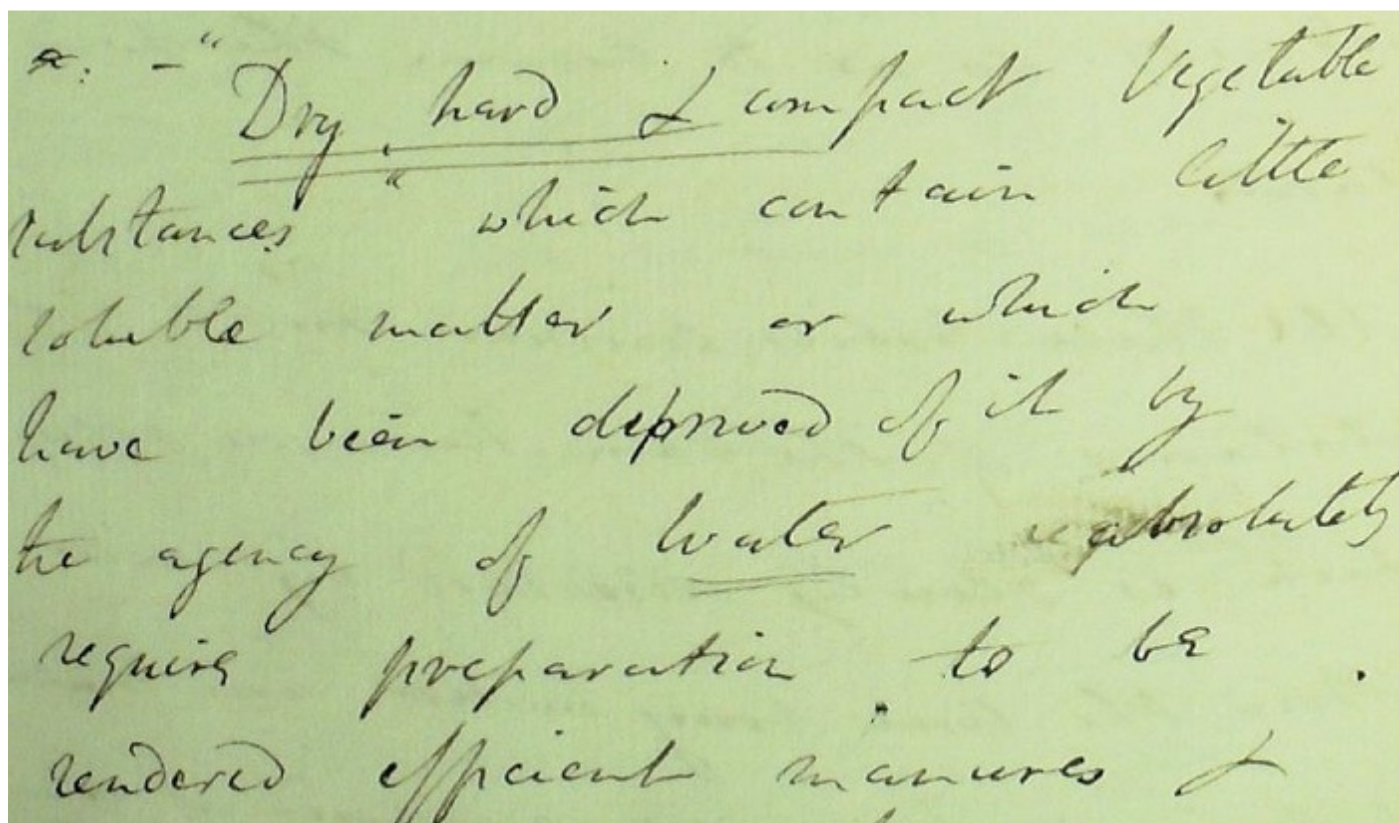 - "Dry, hard & compact Vegetable
substances" which contain little
soluble matter or which
have been deprived of it by
the agency of water absolutely
require preparation to be
rendered efficient manures &